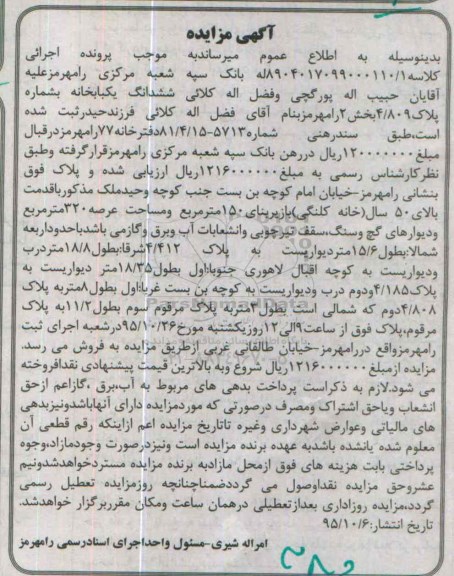 آگهی مزایده
بدینوسیله به اطلاع عموم میرساندبه موجب پرونده اجرائی
کلاسه۸۹۰۴۰۱۷۰۹۹۰۰۰۱۱۰/۱له بانک سپه شعبه مرکزی رامهرمزعلیه
آقایان حبیب اله پورگچی وفضل اله کلائی ششدانگ یکبابخانه بشماره
پلاک۴/۸۰۹بخش۲رامهرمزبنام آقای فضل اله کلائی فرزندحیدرثبت شده
است،طبق سندرهنی شماره۵۷۱۳-۸۱/۴/۱۵دفترخانه۷۷رامهرمزدرقبال
مبلغ۱۲۰۰۰۰۰۰۰ریال دررهن بانک سپه شعبه مرکزی رامهرمزقرارگرفته وطبق
نظرکارشناس رسمی به مبلغ۱۲۱۶۰۰۰۰۰۰ریال ارزیابی شده و پلاک فوق
بنشانی رامهرمز-خیابان امام کوچه بن بست جنب کوچه وحیدملک مذکورباقدمت
بالای۵۰ سال(خانه کلنگی)بازیربنای۱۵۰مترمربع ومساحت عرصه۳۲۰مترمربع
ودیوارهای گچ وسنگ،سقف تیرچوبی وانشعابات آب وبرق وگازمی باشدباحدوداربعه
شمالا:بطول۱۵/۶متردیواریست به پلاک ۴/۴۱۲شرقا:بطول۱۸/۸متردرب
ودیواریست به کوچه اقبال لاهوری جنوبا:اول بطول۱۸/۳۵متر دیواریست به
پلاک۴/۱۸۵ودوم درب ودیواریست به کوچه بن بست غربا:اول بطول۸متربه پلاک
۴/۸۰۸دوم که شمالی است بطول۴متربه پلاک مرقوم سوم بطول۱۱/۲به پلاک
مرقوم،پلاک فوق از ساعت۹الی۱۲روزیکشنبه مورخ۹۵/۱۰/۲۶درشعبه اجرای ثبت
رامهرمزواقع دررامهرمز-خیابان طالقانی غربی ازطریق مزایده به فروش می رسد.
مزایده ازمبلغ۱۲۱۶۰۰۰۰۰۰ریال شروع وبه بالاترین قیمت پیشنهادی نقدافروخته
می شود.لازم به ذکراست پرداخت بدهی های مربوط به آب،برق ،گازاعم ازحق
انشعاب ویاحق اشتراک ومصرف درصورتی که موردمزایده دارای آنهاباشدونیزبدهی
های مالیاتی وعوارض شهرداری وغیره تاتاریخ مزایده اعم ازاینکه رقم قطعی آن
معلوم شده یانشده باشدبه عهده برنده مزایده است ونیزدرصورت وجودمازاد،وجوه
پرداختی بابت هزینه های فوق ازمحل مازادبه برنده مزایده مستردخواهدشدونیم
عشروحق مزایده نقداوصول می گرددضمناچنانچه روزمزایده تعطیل رسمی
گردد،مزایده روزاداری بعدازتعطیلی درهمان ساعت ومکان مقرربرگزار خواهدشد.
تاریخ انتشار:۹۵/۱۰/۶
امراله شیری-مسئول واحداجرای اسنادرسمی رامهرمز